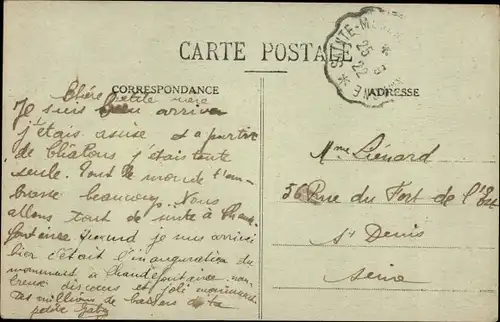 CARTE POSTALE
CORRESPONDANCE
ADRESSE
SAINTE-M
25
22
Chère petite mère
Je suis bien arrivée
j'étais assise et a partir
de Châlons j'étais toute
seule. Tout le monde t'em-
brasse beaucoup. Nous
allons tout de suite à Chaude
fontaine quand je suis arrivée
hier c'était l'inauguration du
monument à Chaudefontaine nom-
breux discours et joli monument
Des millions de baisers de ta
petite Gaby
Mme Liénard
56 Rue du Fort de l'Est
St Denis
Seine